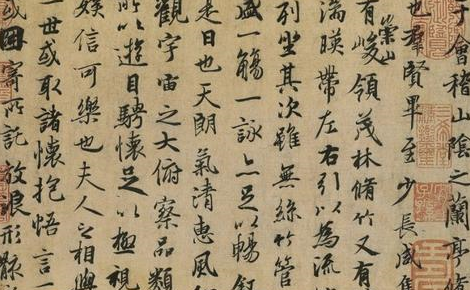 于會稽山陰之蘭亭脩
也羣賢畢至少長咸集
有崇山峻領茂林脩竹又有
湍暎帶左右引以為流
列坐其次雖無絲竹管
盛一觴一詠亦足以暢敘
是日也天朗氣清惠風
觀宇宙之大俯察品類
所以遊目騁懷足以極視
娛信可樂也夫人之相與
一世或取諸懷抱悟言一
或因寄所託放浪形骸